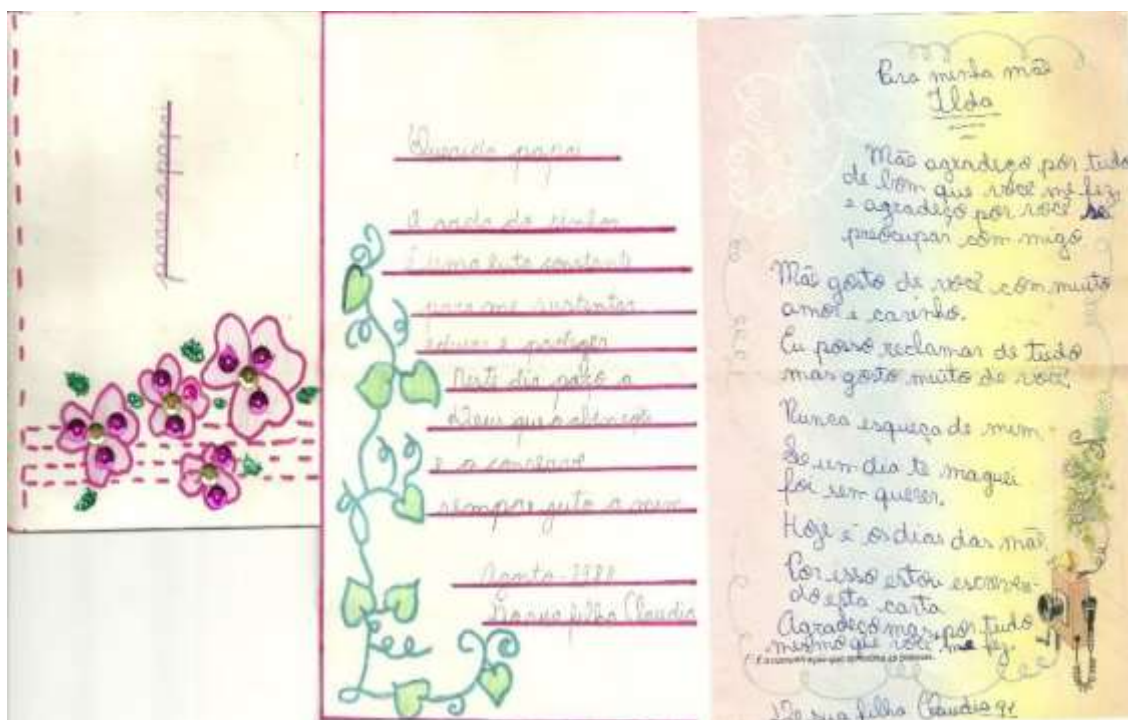 para o papai
Querido papai
A vida do senhor
É uma luta constante
para me sustentar
educar e proteger
Neste dia peço a
Deus que o abençoe
e o conserve
sempre juto a mim
Agosto-1988
Da sua filha Claudia
Para minha mãe
Ilda
Mãe agradeço por tudo
de bom que você me fez,
e agradeço por você se
preocupar com migo
Mãe gosto de você com muito
amor e carinho.
Eu posso reclamar de tudo
mas gosto muito de você.
Nunca esqueça de mim
Se um dia te maguei
foi sem querer.
Hoje é os dias das mãe.
Por isso estou escreven-
do esta carta
Agradeço mas, por tudo
mesmo que você me fez.
De sua filha Claudia 91